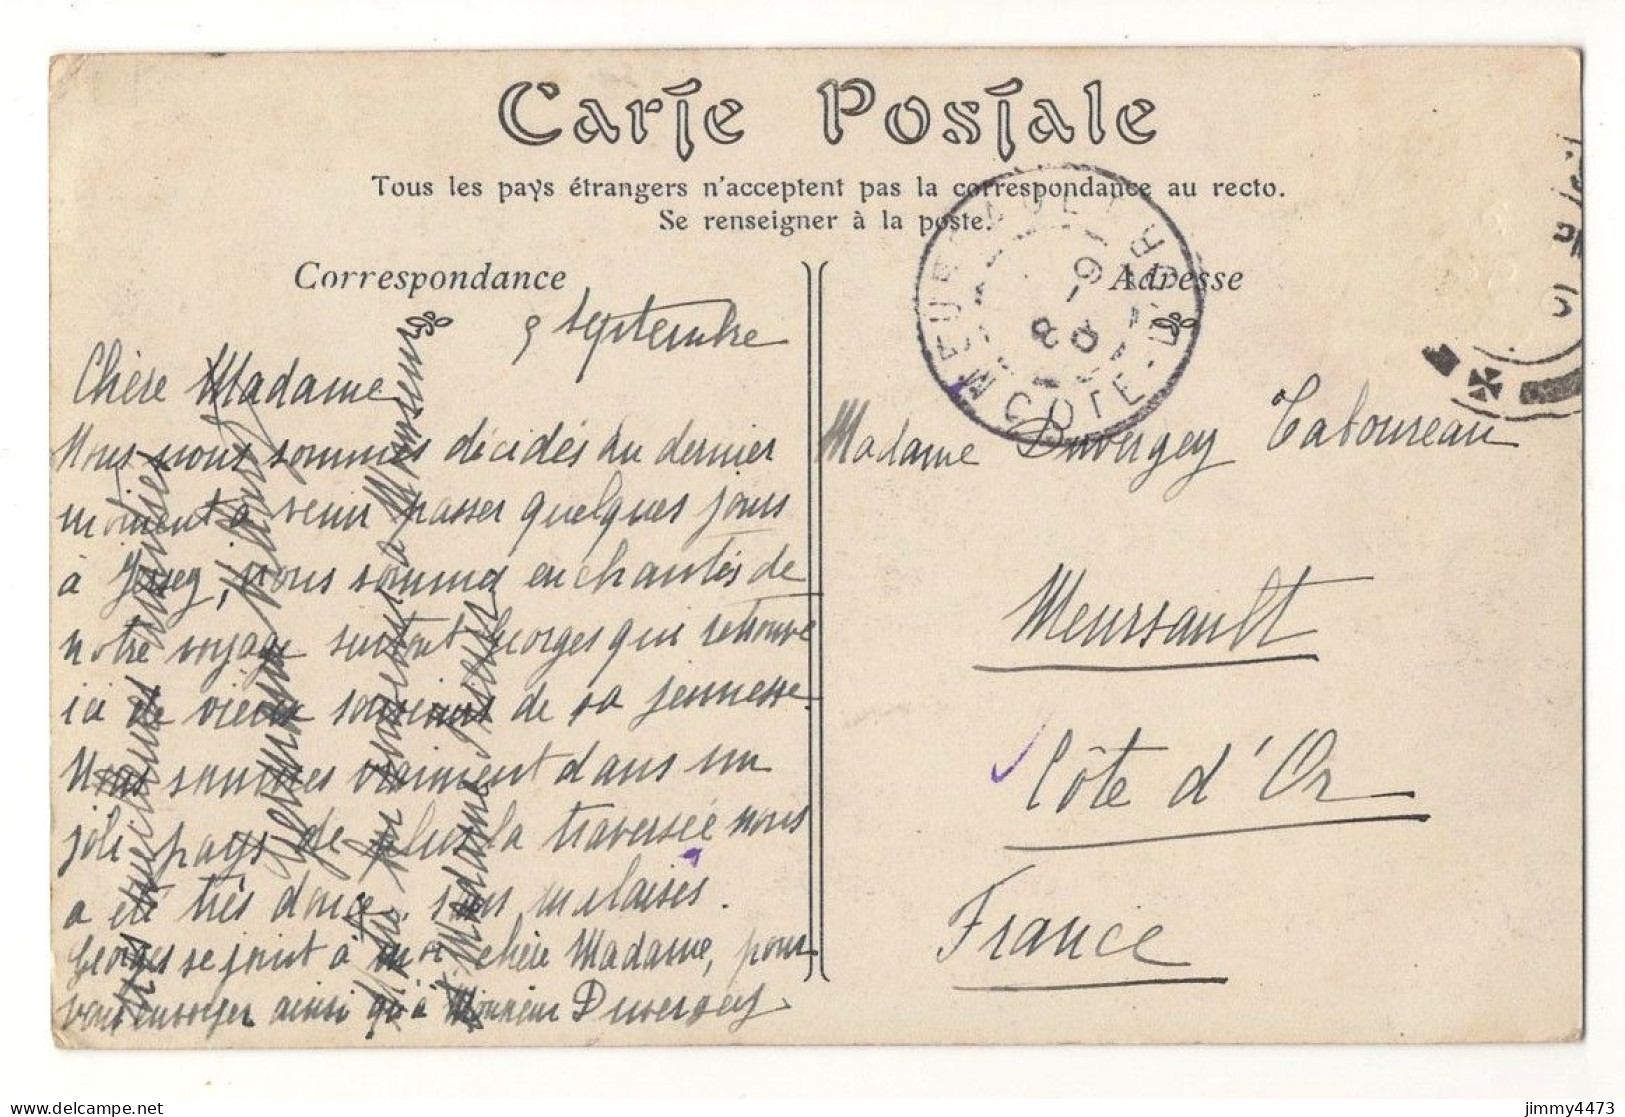 Carte Postale
Tous les pays étrangers n'acceptent pas la correspondance au recto.
Se renseigner à la poste.
Correspondance
Adresse
MEURSAULT
CÔTE-D'OR
9 septembre
Chère Madame
Nous nous sommes décidés au dernier
moment à venir passer quelques jours
à Jersey, nous sommes enchantés de
notre voyage surtout Georges qui retrouve
ici de vieux souvenirs de sa jeunesse.
Nous sommes vraiment dans un
joli pays de plus la traversée nous
a été très douce, sans malaises.
Georges se joint à moi chère Madame, pour
vous envoyer ainsi qu'à Monsieur Duvergey
nos meilleures amitiés
Germaine
bon souvenir à Monsieur
Madame
Madame Duvergey Taboureau
Meursault
Côte d'Or
France
jimmy4473
delcampe.net